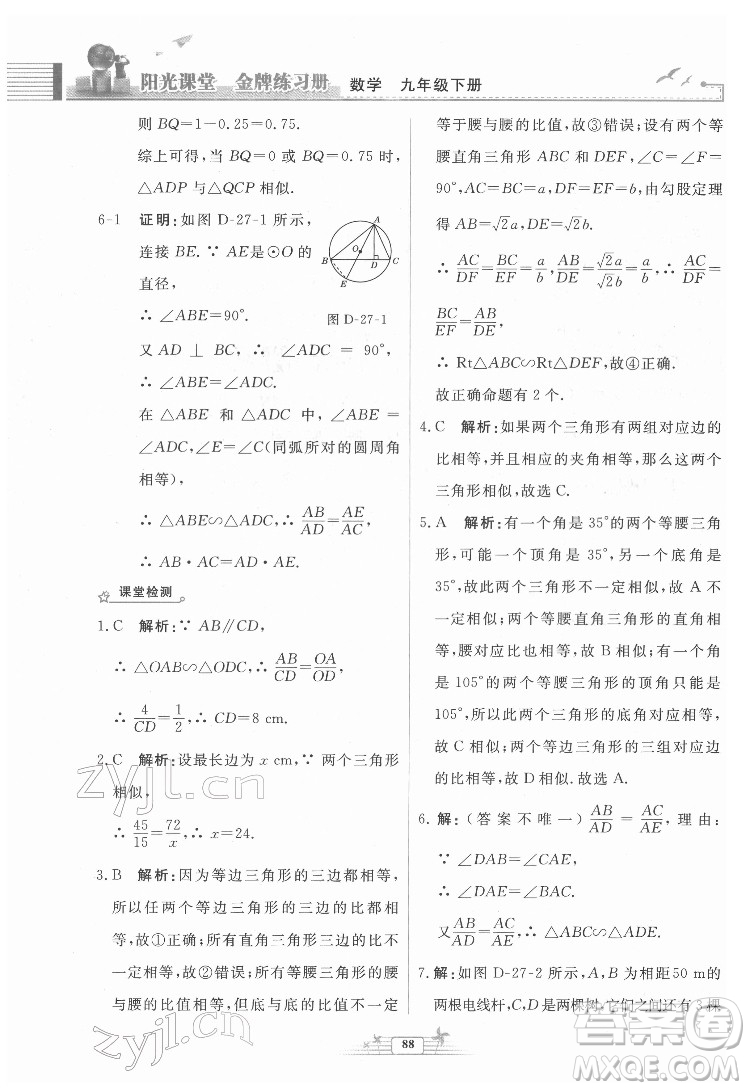 阳光课堂 金牌练习册 数学 九年级下册
则 BQ=1-0.25=0.75.
综上可得，当 BQ=0 或 BQ=0.75 时，
△ADP 与△QCP 相似.
6-1 证明:如图 D-27-1 所示，
连接 BE.∵ AE是⊙O 的
直径，
∴ ∠ABE=90°.
A
O
B
D
C
E
图 D-27-1
又 AD ⊥ BC，∴ ∠ADC = 90°，
∴ ∠ABE=∠ADC.
在 △ABE 和 △ADC 中，∠ABE =
∠ADC，∠E=∠C(同弧所对的圆周角
相等)，
∴ △ABE∽△ADC，∴ AB/AD=AE/AC，
∴ AB·AC=AD·AE.
课堂检测
1.C 解析:∵ AB∥CD，
∴ △OAB∽△ODC，∴ AB/CD=OA/OD，
∴ 4/CD=1/2，∴ CD=8 cm.
2.C 解析:设最长边为 x cm，∵ 两个三角形
相似，
∴ 45/15=72/x，∴ x=24.
3.B 解析:因为等边三角形的三边都相等，
所以任两个等边三角形的三边的比都相
等，故①正确；所有直角三角形的比不一定相
等，故②错误；所有等腰三角形的腰与腰
的比值相等，但底与底的比值不一定
等于腰与腰的比值，故③错误；设有两个等
腰直角三角形 ABC 和 DEF，∠C=∠F=
90°，AC=BC=a，DF=EF=b，由勾股定理
得 AB=√2a，DE=√2b.
∴ AC/DF=BC/EF=a/b，AB/DE=√2a/√2b=a/b，∴ AC/DF=
BC/EF=AB/DE，
∴ Rt△ABC∽Rt△DEF，故④正确.
故正确命题有 2 个.
4.C 解析:如果两个三角形有两组对应边的
比相等，并且相应的夹角相等，那么这两个
三角形相似，故选 C.
5.A 解析:有一个角是 35°的两个等腰三角
形，可能一个顶角是 35°，另一个底角是
35°，故此两个三角形不一定相似，故 A 不
一定相似；两个等腰直角三角形的直角相
等，腰对应边的比相等，故 B 相似；有一个角
是 105°的两个等腰三角形的顶角必是
105°，则两个等腰三角形的底角对应相等，
故 C 相似；两个等边三角形的三组对应边
的比值相等，故 D 相似. 故选 A.
6.解:(答案不唯一)AB/AD=AC/AE，理由:
∵ ∠DAB=∠CAE，
∴ ∠DAE=∠BAC.
又AB/AD=AC/AE，∴ △ABC∽△ADE.
7.解:如图 D-27-2 所示，A，B 为相距50 m的
两根电线杆，C，D是两棵树，它们之间还有3棵
88
zyjl.cn
zyjl.cn
答案圈
MXQE.COM